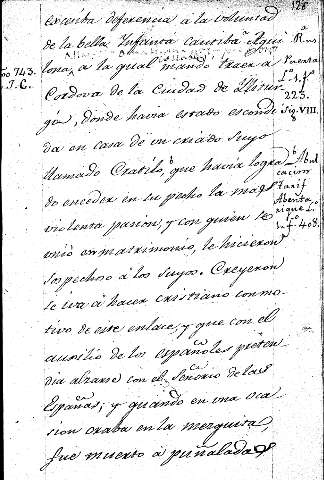 128
excesiva diferencia á la voluntad
de la bella Infanta cautiba Aqui
lona, a la qual mandó traer a
Cordova de la Ciudad de Illitur
gi, donde havia estado escondi
da en casa de un criado suyo
llamado Cratilo, que havia logra
do encender en su pecho la mas
violenta pasion, y con quien se
unió en matrimonio, le hicieron
sospechoso á los suyos. Creyeron
se iva á hacer cristiano con mo
tivo de este enlace, y que con el
auxilio de los españoles preten
dia alzarse con el Señorio de las
Españas; y quando en una oca
sion oraba en la mezquita,
fue muerto á puñaladas
Año 743.
J.C.
223.
Sig. VIII.
b Abul
cacim
tarif
Abenta
rique
f. 405.